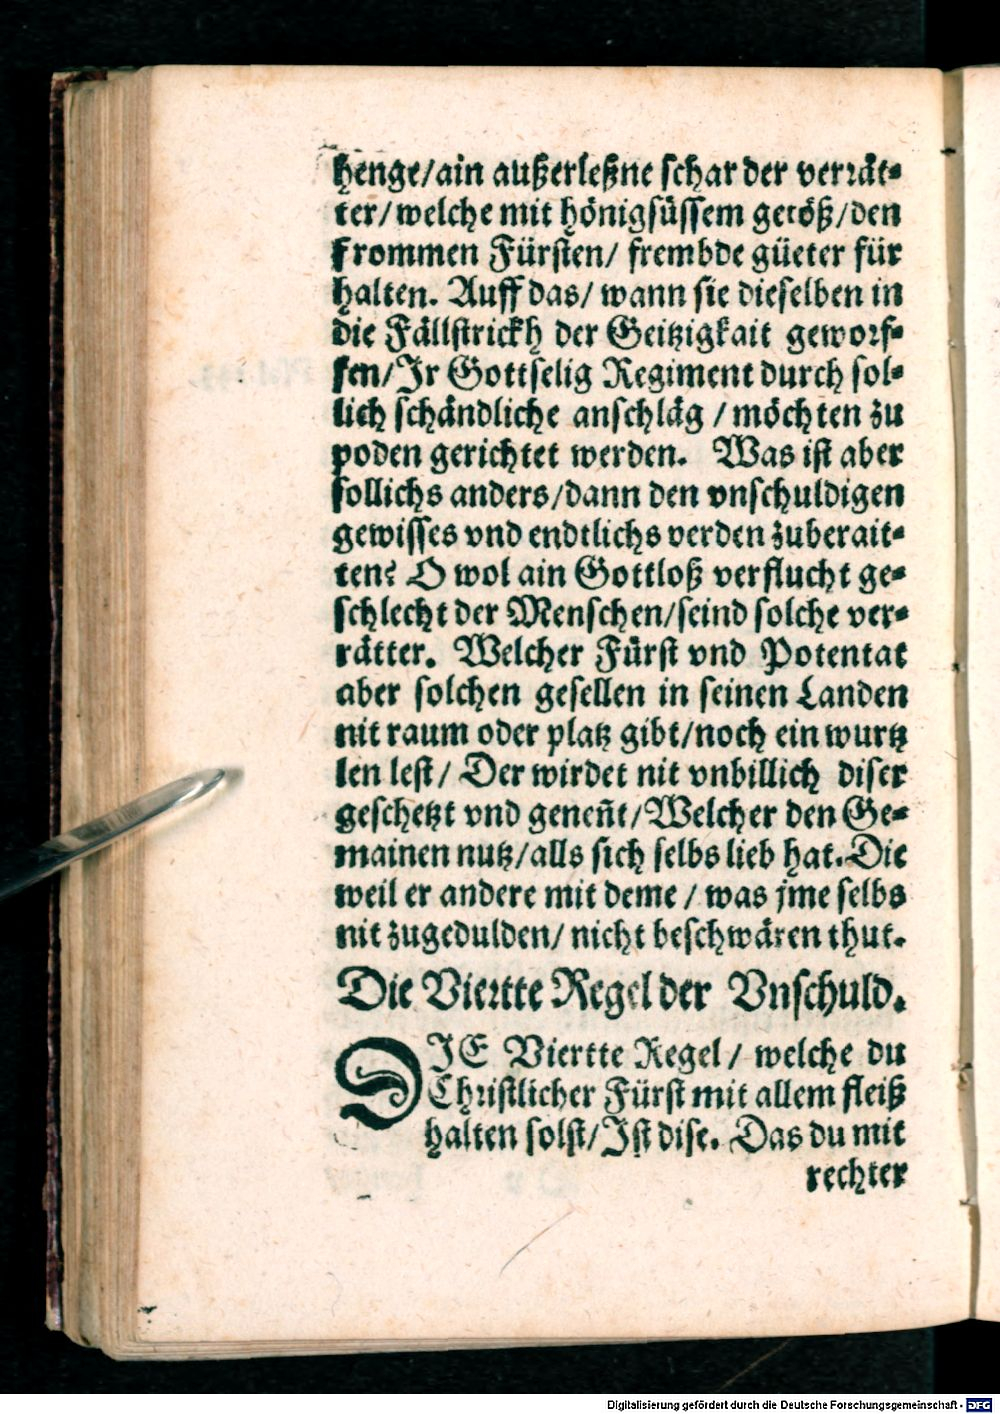 henge/ain außerleßne schar der verrät-
ter/welche mit hönigsüssem getöß/den
frommen Fürsten/ frembde güeter für
halten. Auff das/ wann sie dieselben in
die Fällstrickh der Geitzigkait geworf-
fen/Ir Gottselig Regiment durch sol-
lich schändliche anschläg /möchten zu
poden gerichtet werden. Was ist aber
sollichs anders/dann den vnschuldigen
gewisses vnd endtlichs verden zuberait-
ten? O wol ain Gottloß verflucht ge-
schlecht der Menschen/seind solche ver-
rätter. Welcher Fürst vnd Potentat
aber solchen gesellen in seinen Landen
nit raum oder platz gibt/noch ein wurtz
len lest/ Der wirdet nit vnbillich diser
geschetzt vnd geneñt/Welcher den Ge-
mainen nutz/alls sich selbs lieb hat. Die
weil er andere mit deme / was jme selbs
nit zugedulden/ nicht beschwären thut.
Die Viertte Regel der Vnschuld.
DIE Viertte Regel/ welche du
Christlicher Fürst mit allem fleiß
halten solst/Ist dise. Das du mit
rechter
Digitalisierung gefördert durch die Deutsche Forschungsgemeinschaft - DFG